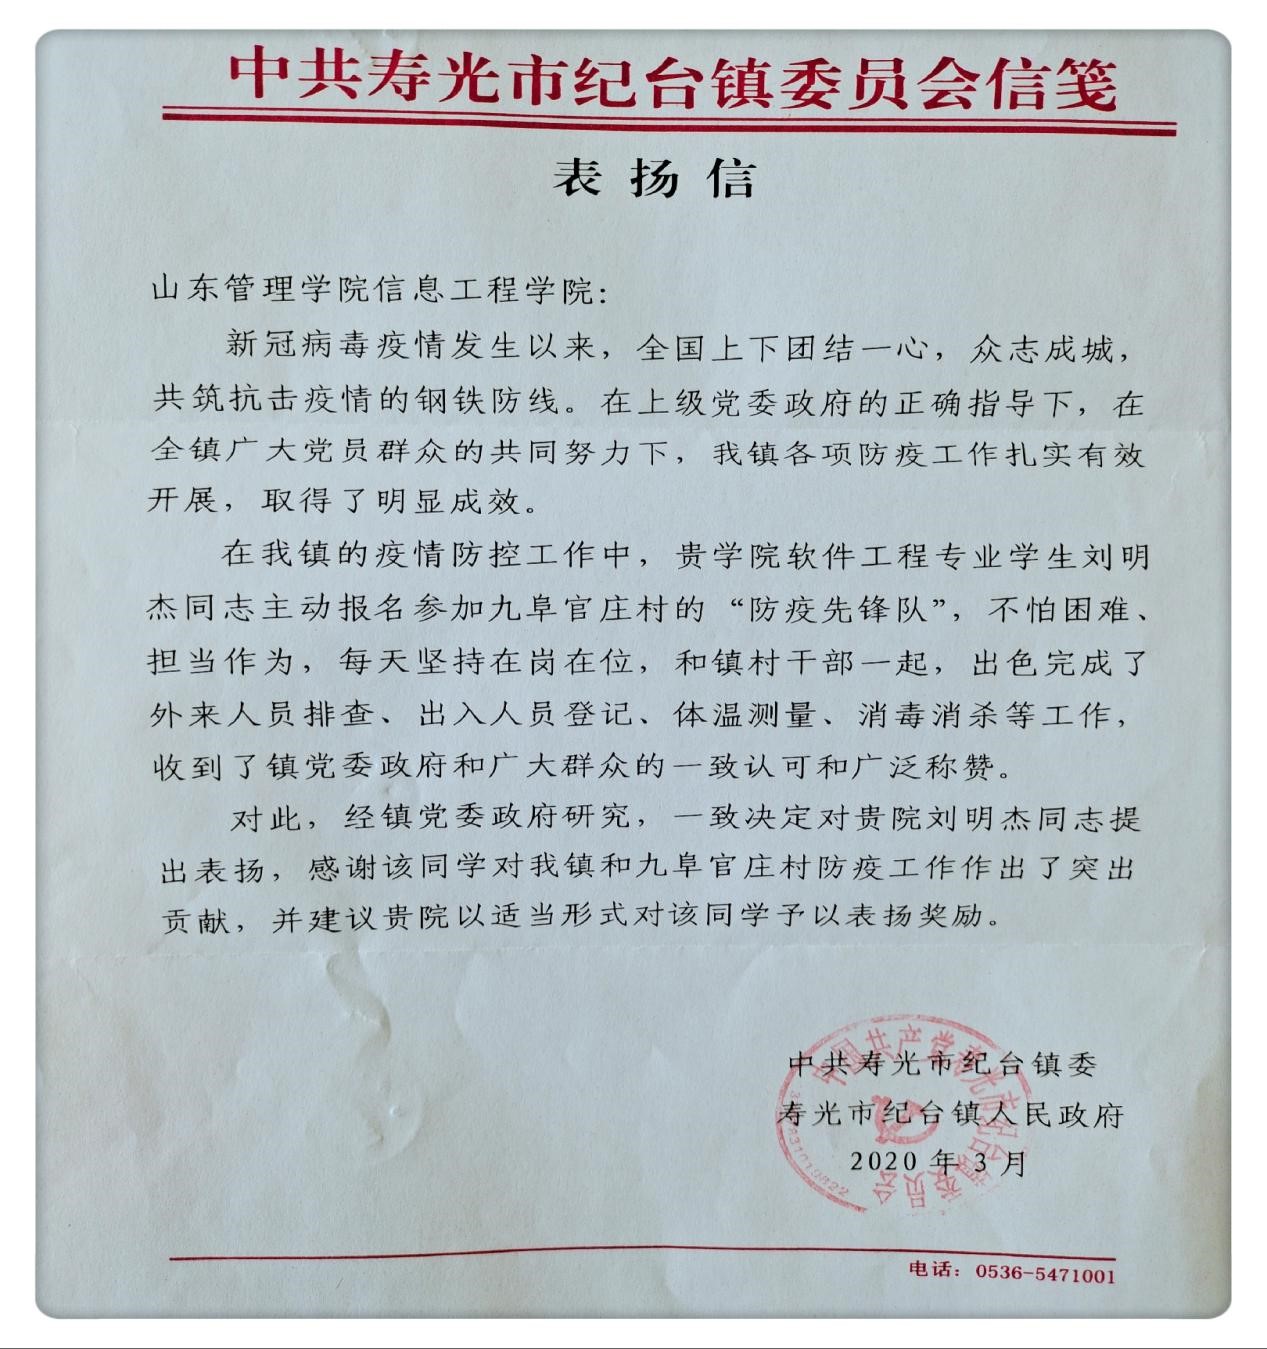 中共寿光市纪台镇委员会信笺
表扬信
山东管理学院信息工程学院：
新冠病毒疫情发生以来，全国上下团结一心，众志成城，
共筑抗击疫情的钢铁防线。在上级党委政府的正确指导下，在
全镇广大党员群众的共同努力下，我镇各项防疫工作扎实有效
开展，取得了明显成效。
在我镇的疫情防控工作中，贵学院软件工程专业学生刘明
杰同志主动报名参加九阜官庄村的“防疫先锋队”，不怕困难、
担当作为，每天坚持在岗在位，和镇村干部一起，出色完成了
外来人员排查、出入人员登记、体温测量、消毒消杀等工作，
收到了镇党委政府和广大群众的一致认可和广泛称赞。
对此，经镇党委政府研究，一致决定对贵院刘明杰同志提
出表扬，感谢该同学对我镇和九阜官庄村防疫工作作出了突出
贡献，并建议贵院以适当形式对该同学予以表扬奖励。
中国共产党寿光市纪台镇委员会
中共寿光市纪台镇委
寿光市纪台镇人民政府
2020年3月
电话：0536-5471001